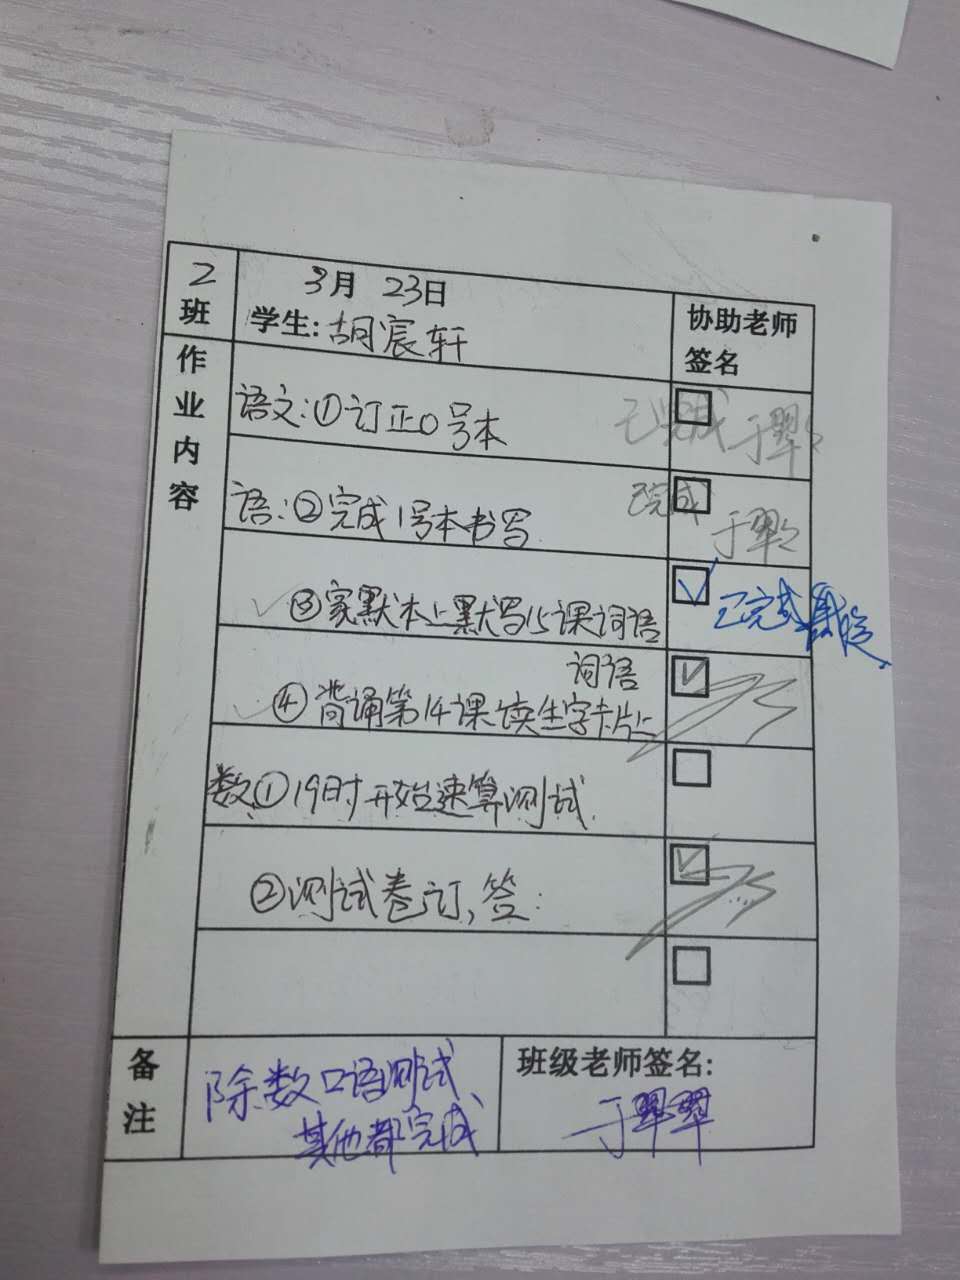 2班
3月 23日
学生: 胡宸轩
协助老师签名
作业内容
语文:①订正0号本
已完成 于翠
语:②完成1号本书写
已完成 于翠
③家默本上默写15课词语
已完成
词语
④背诵第14课读生字卡片上
数①19时开始速算测试
②测试卷订,签.
备注
除数口语测试
其他都完成
班级老师签名:
于翠翠